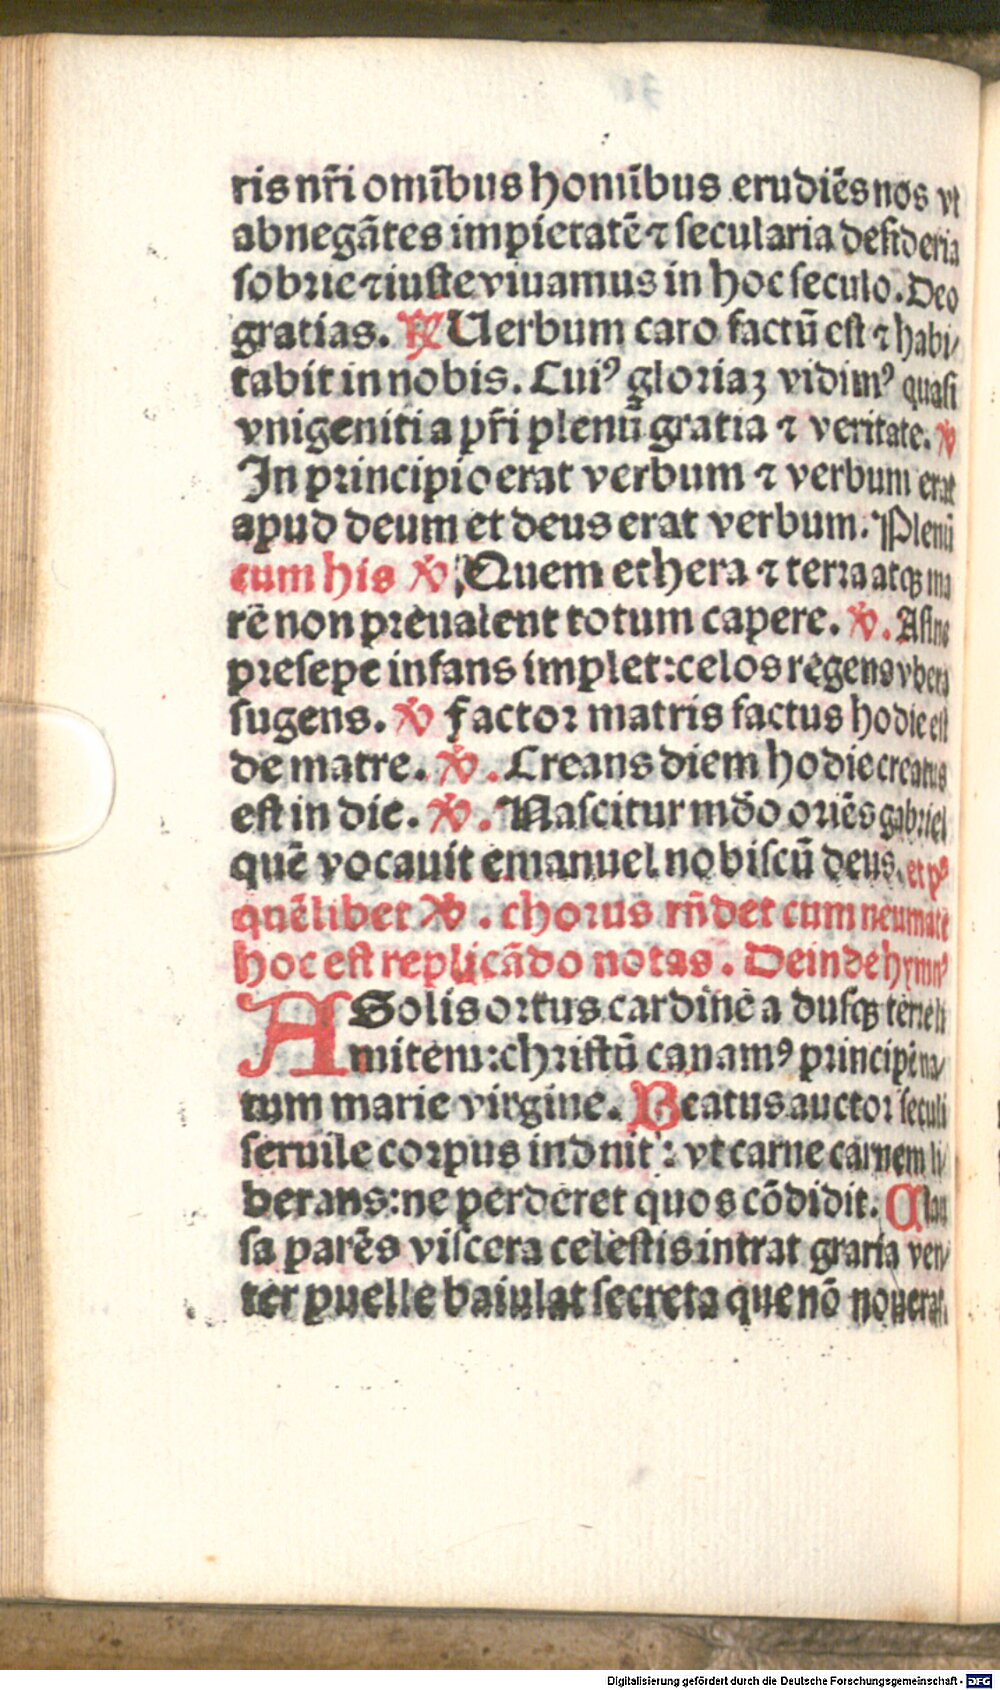 ris nr̃i omĩbus homĩbus erudiẽs nos vt
abnegãtes impietatẽ ⁊ secularia desideria
sobrie ⁊ iuste viuamus in hoc seculo. Deo
gratias. ℟ Uerbum caro factũ est ⁊ habi/
tabit in nobis. Cui⁹ gloriaꝫ vidim⁹ quasi
vnigeniti a pr̃i plenũ gratia ⁊ veritate. ℣
In principio erat verbum ⁊ verbum erat
apud deum et deus erat verbum. Plenũ
cum his ℣ Quem ethera ⁊ terra atqꝫ ma
rẽ non preualent totum capere. ℣. Asine
presepe infans implet: celos regens vbera
sugens. ℣ Factor matris factus hodie est
de matre. ℣. Creans diem hodie creatus
est in die. ℣. Nascitur mũdo oriẽs gabriel
quẽ vocauit emanuel nobiscũ deus. et p⁹
quẽlibet ℣. chorus rñdet cum neumate
hoc est replicãdo notas. Deinde hymn⁹
A Solis ortus cardine a dusqꝫ terre li
mitem: christũ canam⁹ principẽ na/
tum marie virgine. Beatus auctor seculi
seruile corpus induit: vt carne carnem li/
berans: ne perderet quos cõdidit. Clau
sa parẽs viscera celestis intrat gratia ven/
ter puelle baiulat secreta que nõ nouerat.
Digitalisierung gefördert durch die Deutsche Forschungsgemeinschaft - DFG